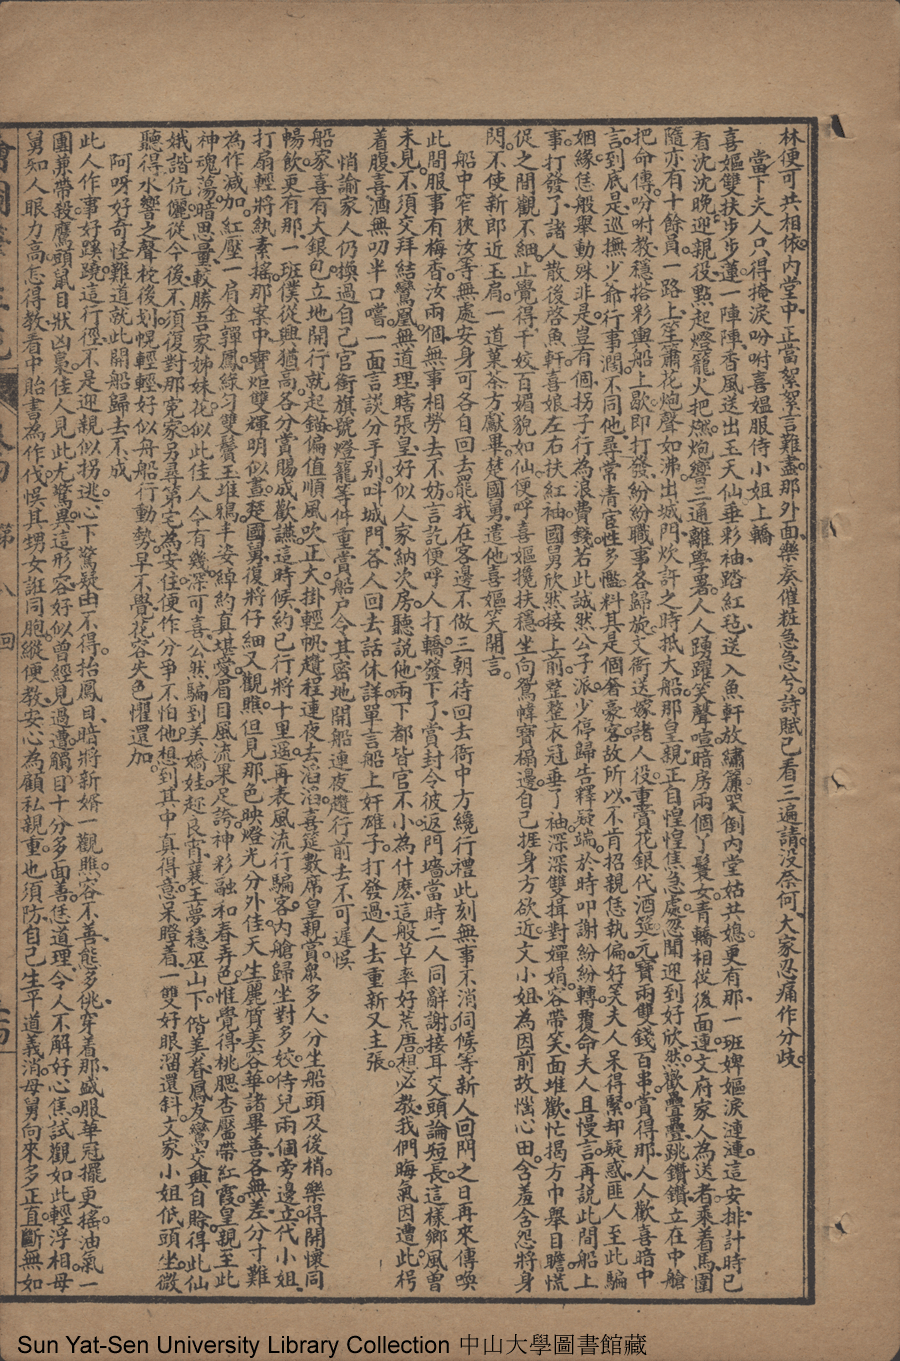 林便可共相依內堂中正當絮絮言難盡那外面樂奏催粧急急兮詩賦已看三遍請没奈何大家忍痛作分歧
當下夫人只得掩淚吩咐喜媼服侍小姐上轎
喜嫗雙扶步步蓮一陣陣香風送出玉天仙垂彩袖踏紅毡送入魚軒放繡簾哭倒內堂姑共媳更有那一班婢嫗淚漣漣這安排計時已
看沈沈晚迎親役點起燈籠火把燃炮響三通離學署人人踴躍笑聲喧暗房兩個丫鬟女青轎相從後面連文府家人為送者乘着馬團
隨亦有十餘員一路上笙簫花炮聲如沸出城門炊許之時抵大船那皇親正自惶惶焦急處忽聞迎到好欣然歡疊疊跳鑽鑽立在中艙
把命傳吩咐教穩搭彩輿船上歇即打發紛紛職事各歸旋文衙送嫁諸人役重賞花銀代酒筵元寶兩雙錢百串賞得那人人歡喜暗中
言到底是巡撫少爺行事濶不同他尋常清宦性多慳料其是個奢豪客故所以不肯招親恁執偏好笑夫人呆得緊却疑惑匪人至此騙
姻緣恁般舉動殊非是豈有個拐子行為浪費錢若此誠然公子派少停歸告釋疑端於時叩謝紛紛轉覆命夫人且慢言再説此間船上
事打發了諸人散後啓魚軒喜娘左右扶紅袖國舅欣然接上前整整衣冠垂了袖深深雙揖對嬋娟容帶笑面堆歡忙揭方巾舉目瞻慌
促之間觀不細止覺得千姣百媚貌如仙便呼喜嫗攙扶穩坐向鴛幃寶榻邊自己捱身方欲近文小姐為因前故惱心田含羞含怨將身
閃不使新郎近玉肩一道菓茶方獻畢楚國舅遣他喜嫗笑開言
船中窄狹汝等無處安身可各自回去罷我在客邊不做三朝待回去衙中方纔行禮此刻無事不消伺候等新人回門之日再來傳喚
此間服事有梅香汝兩個無事相勞去不妨言訖便呼人打轎發下了賞封令彼返門墻當時二人同辭謝接耳交頭論短長這樣鄉風曾
未見不須交拜結鸞凰無道理瞎張皇好似人家納次房聽説他兩下都皆官不小為什麽這般草率好荒唐想必教我們晦氣因遭此枵
着腹喜酒無叨半口嚐一面言談分手别叫城門各人回去話休詳單言船上奸雄子打發過人去重新又主張
悄諭家人仍換過自己官銜旗號燈籠等件重賞船户令其密地開船連夜趲行前去不可遲悞
船家喜有大銀包立地開行就起錨偏值順風吹正大掛輕帆趲程連夜去滔滔喜筵數席皇親賞衆多人分坐船頭及後梢樂得開懷同
暢飲更有那一班僕從興猶高各分賞賜成歡讌這時候約已行將十里遥再表風流行騙客內艙歸坐對多姣侍兒兩個旁邊立代小姐
打扇輕將紈素搖那案中寶炬雙輝明似晝楚國舅復將仔細又觀瞧但見那色映燈光分外佳天生麗質美容華諸畢善各無差分寸難
為作減加紅壓一肩金嚲鳳綠匀雙鬢玉堆鴉丰姿綽約真堪愛眉目風流果足誇神彩融和春弄色惟覺得桃腮杏靨帶紅霞皇親至此
神魂蕩暗思量較勝吾家姊妹花似此佳人今有幾深可喜公然騙到美嬌娃趁良宵襄王夢穩巫山下偕美眷鳳友鸞交興自賒得此仙
娥諧伉儷從今後不須復對那寃家另尋第宅為安住便作分爭不怕他想到其中真得意呆瞪着一雙好眼溜還斜文家小姐低頭坐微
聽得水響之聲枕後划愰輕輕好似舟船行動勢早不覺花容失色懼還加
阿呀好奇怪難道就此開船歸去不成
此人作事好蹊蹺這行徑不是迎親似拐逃心下驚疑由不得抬鳳目暗將新婿一觀瞧容不善態多佻穿着那盛服華冠擺更搖油氣一
團兼帶殺鷹頭鼠目狀凶梟佳人見此尤驚異這形容好似曾經見過遭觸目十分多面善恁道理令人不解好心焦試觀如此輕浮相母
舅知人眼力高怎得教看中貽書為作伐悞其甥女誑同胞縱便教安心為顧私親重也須防自己生平道義消母舅向來多正直斷無如
第八回